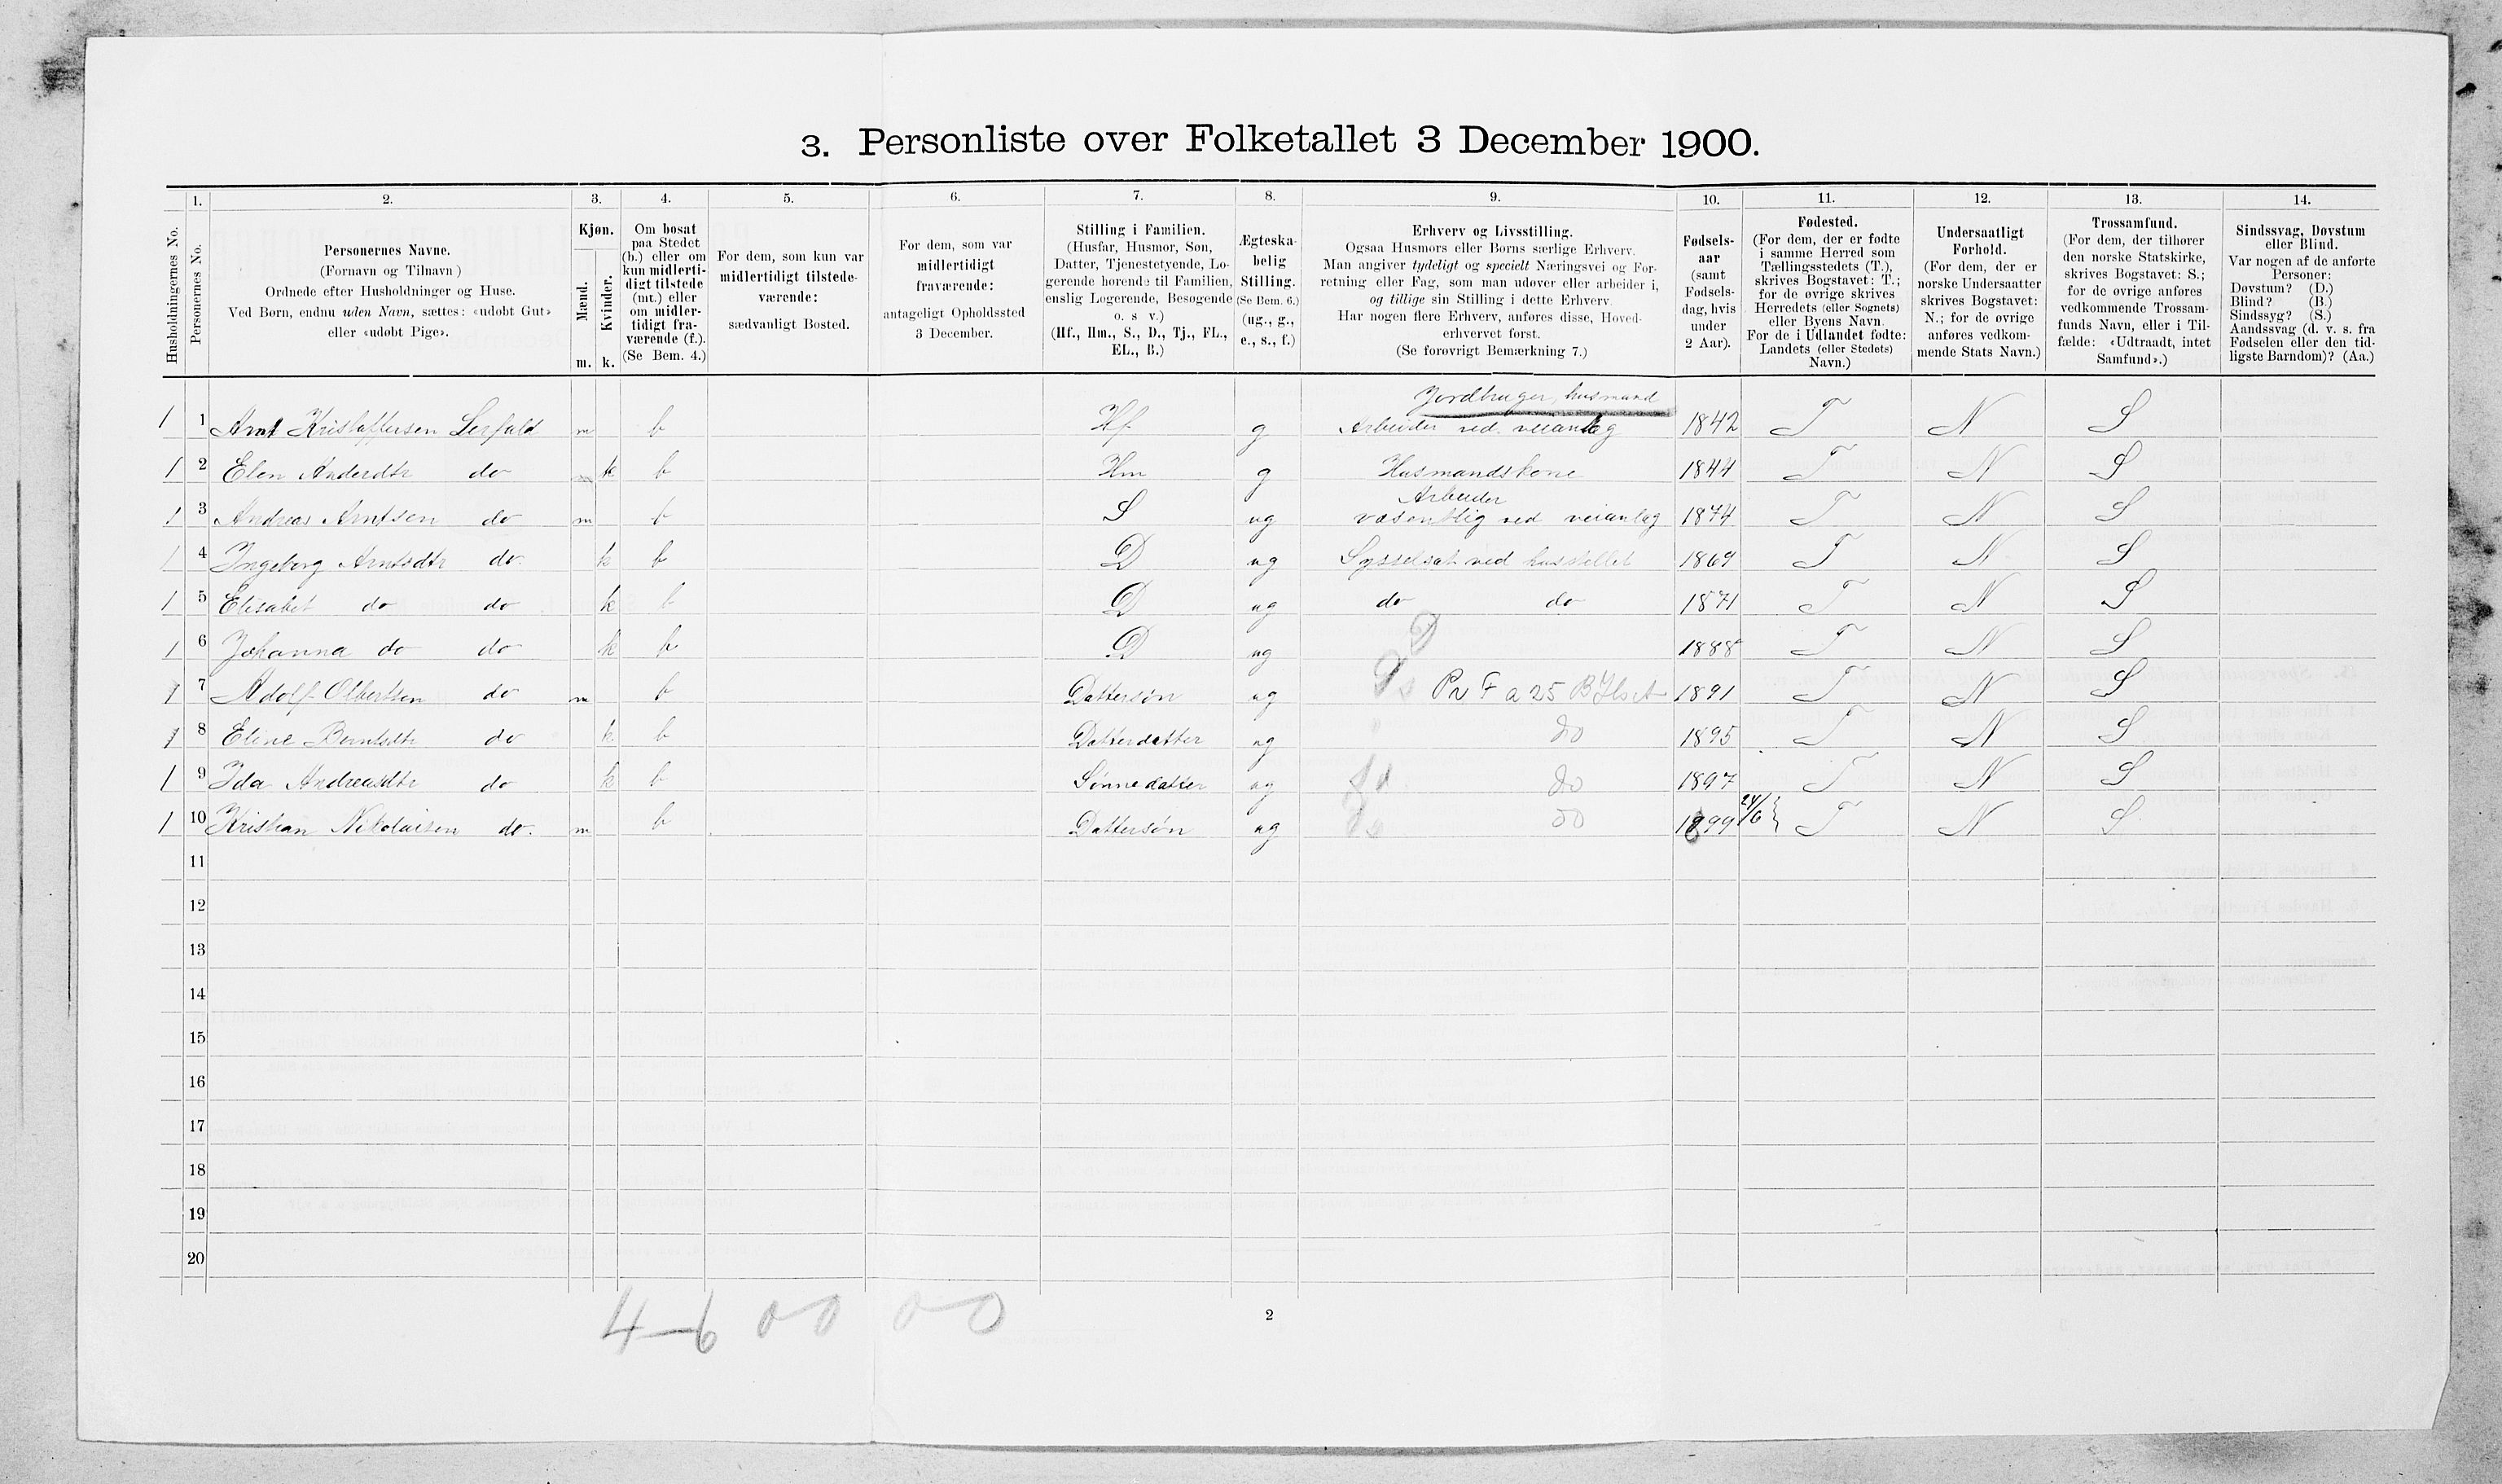 3. Personliste over Folketallet 3 December 1900.
Husholdningernes No.
1.
Personernes No.
2.
Personernes Navne.
(Fornavn og Tilnavn)
Ordnede efter Husholdninger og Huse.
Ved Børn, endnu uden Navn, sættes: «udøbt Gut»
eller «udøbt Pige».
3.
Kjøn.
Mænd.
Kvinder.
m. k.
4.
Om bosat
paa Stedet
(b.) eller om
kun midlerti-
digt tilstede
(mt.) eller
om midler-
tidigt fra-
værende (f.).
(Se Bem. 4.)
5.
For dem, som kun var
midlertidigt tilstede-
værende:
sædvanligt Bosted.
6.
For dem, som var
midlertidigt
fraværende:
antageligt Opholdssted
3 December.
7.
Stilling i Familien.
(Husfar, Husmor, Søn,
Datter, Tjenestetyende, Lo-
gerende hørende til Familien,
enslig Logerende, Besøgende
o. s v.)
(Hf., Hm., S., D., Tj., FL.,
EL., B.)
8.
Ægteska-
belig
Stilling.
(Se Bem. 6.)
(ug., g.,
e., s., f.)
9.
Erhverv og Livsstilling.
Ogsaa Husmors eller Børns særlige Erhverv.
Man angiver tydeligt og specielt Næringsvei og For-
retning eller Fag, som man udøver eller arbeider i,
og tillige sin Stilling i dette Erhverv.
Har nogen flere Erhverv, anføres disse, Hoved-
erhvervet først.
(Se forøvrigt Bemærkning 7.)
10.
Fødsels-
aar
(samt
Fødsels-
dag, hvis
under
2 Aar).
11.
Fødested.
(For dem, der er fødte
i samme Herred som
Tællingsstedets (T.),
skrives Bogstavet: T.;
for de øvrige skrives
Herredets (eller Sognets)
eller Byens Navn.
For de i Udlandet fødte:
Landets (eller Stedets)
Navn.)
12.
Undersaatligt
Forhold.
(For dem, der er
norske Undersaatter
skrives Bogstavet:
N.; for de øvrige
anføres vedkom-
mende Stats Navn.)
13.
Trossamfund.
(For dem, der tilhører
den norske Statskirke,
skrives Bogstavet: S.;
for de øvrige anføres
vedkommende Trossam-
funds Navn, eller i Til-
fælde: «Udtraadt, intet
Samfund».)
14.
Sindssvag, Døvstum
eller Blind.
Var nogen af de anførte
Personer:
Døvstum? (D.)
Blind? (B.)
Sindssyg? (S.)
Aandssvag (d. v. s. fra
Fødselen eller den tid-
ligste Barndom)? (Aa.)
Jordbruger, husmand
1 1 Arnt Kristoffersen Lerfald m b Hf g Arbeider ved veianlæg 1842 T N S
1 2 Elen Andersdtr do k b Hm g Husmandskone 1844 T N S
Arbeider
1 3 Andreas Arntsen do m b S ug væsentlig ved veianlæg 1874 T N S
1 4 Ingeborg Arntsdtr do k b D ug Sysselsat ved husstellet 1869 T N S
1 5 Elisabet do do k b D ug do do 1871 T N S
1 6 Johanna do do k b D ug D 1888 T N S
1 7 Adolf Olbertsen do m b Dattersøn ug Pr F a 25 1891 T N S
1 8 Eline Berntsdtr do k b Datterdatter ug do 1895 T N S
1 9 Ida Andreasdtr do k b Sønnedatter ug do 1897 T N S
1 10 Kristian Nikolaisen do. m b Dattersøn ug do 1899 24/6 T N S
11
12
13
14
15
16
17
18
19
20
4—6 0 0 0 0
2